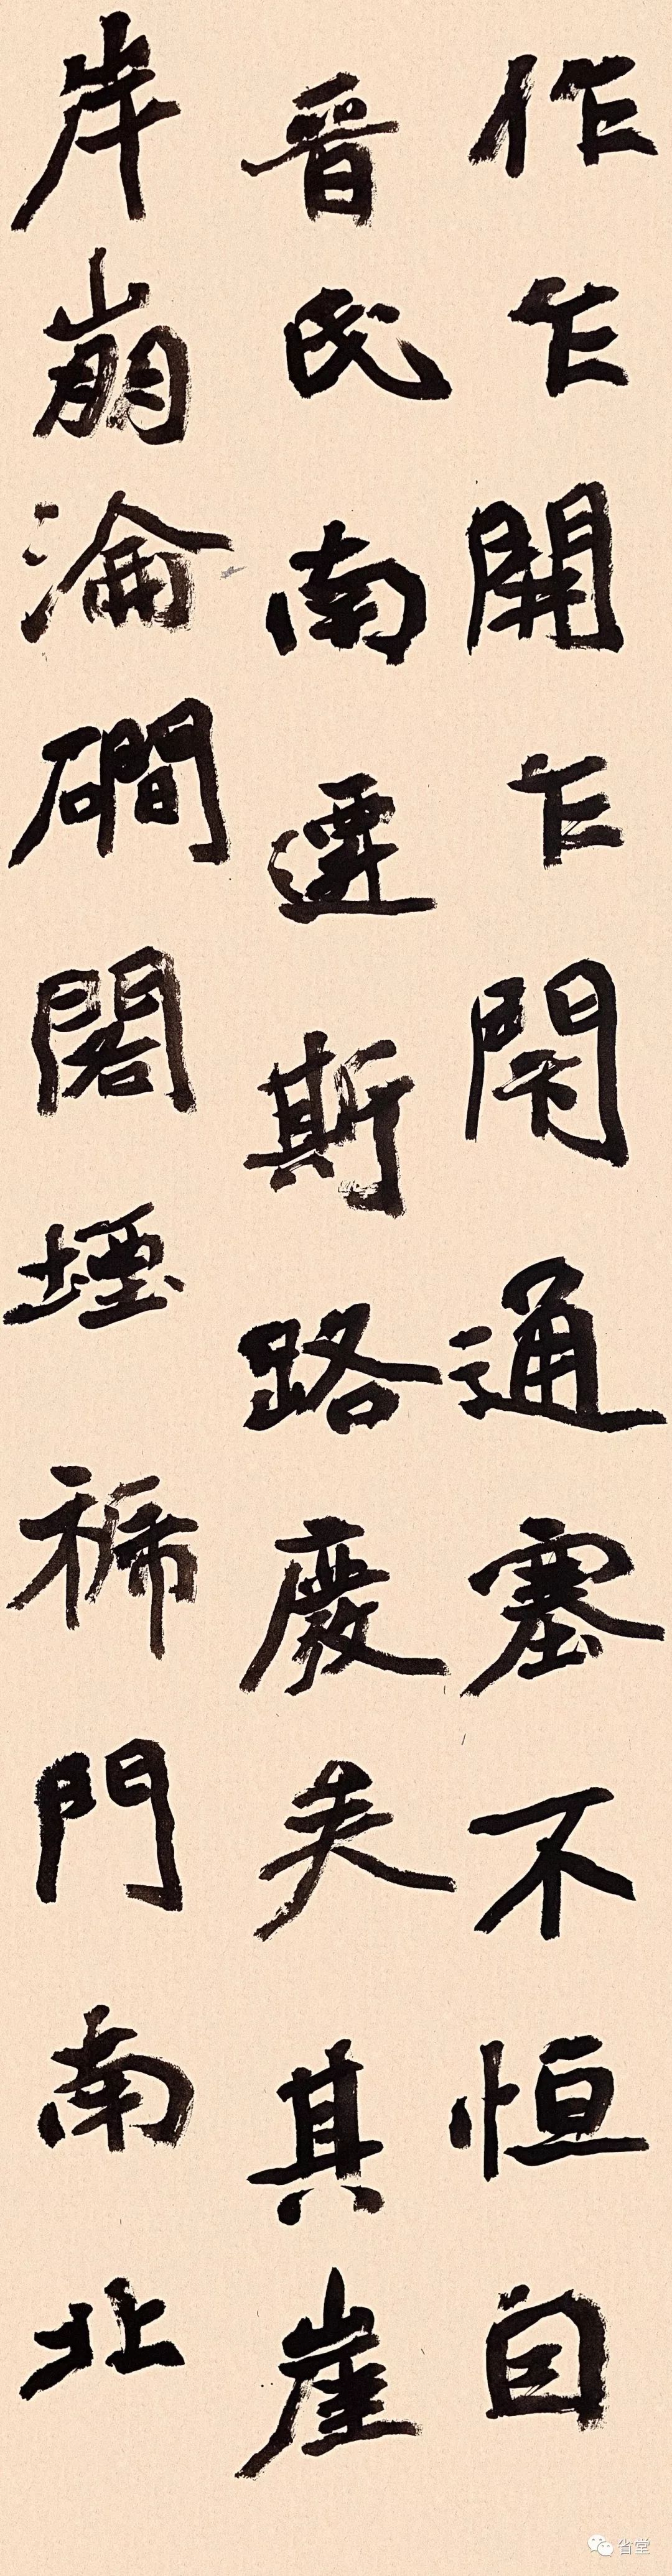 作乍開乍閇通塞不恒自
晋氏南遷斯路廢矣其崖
岸崩淪磵閣堙褫門南北
省堂